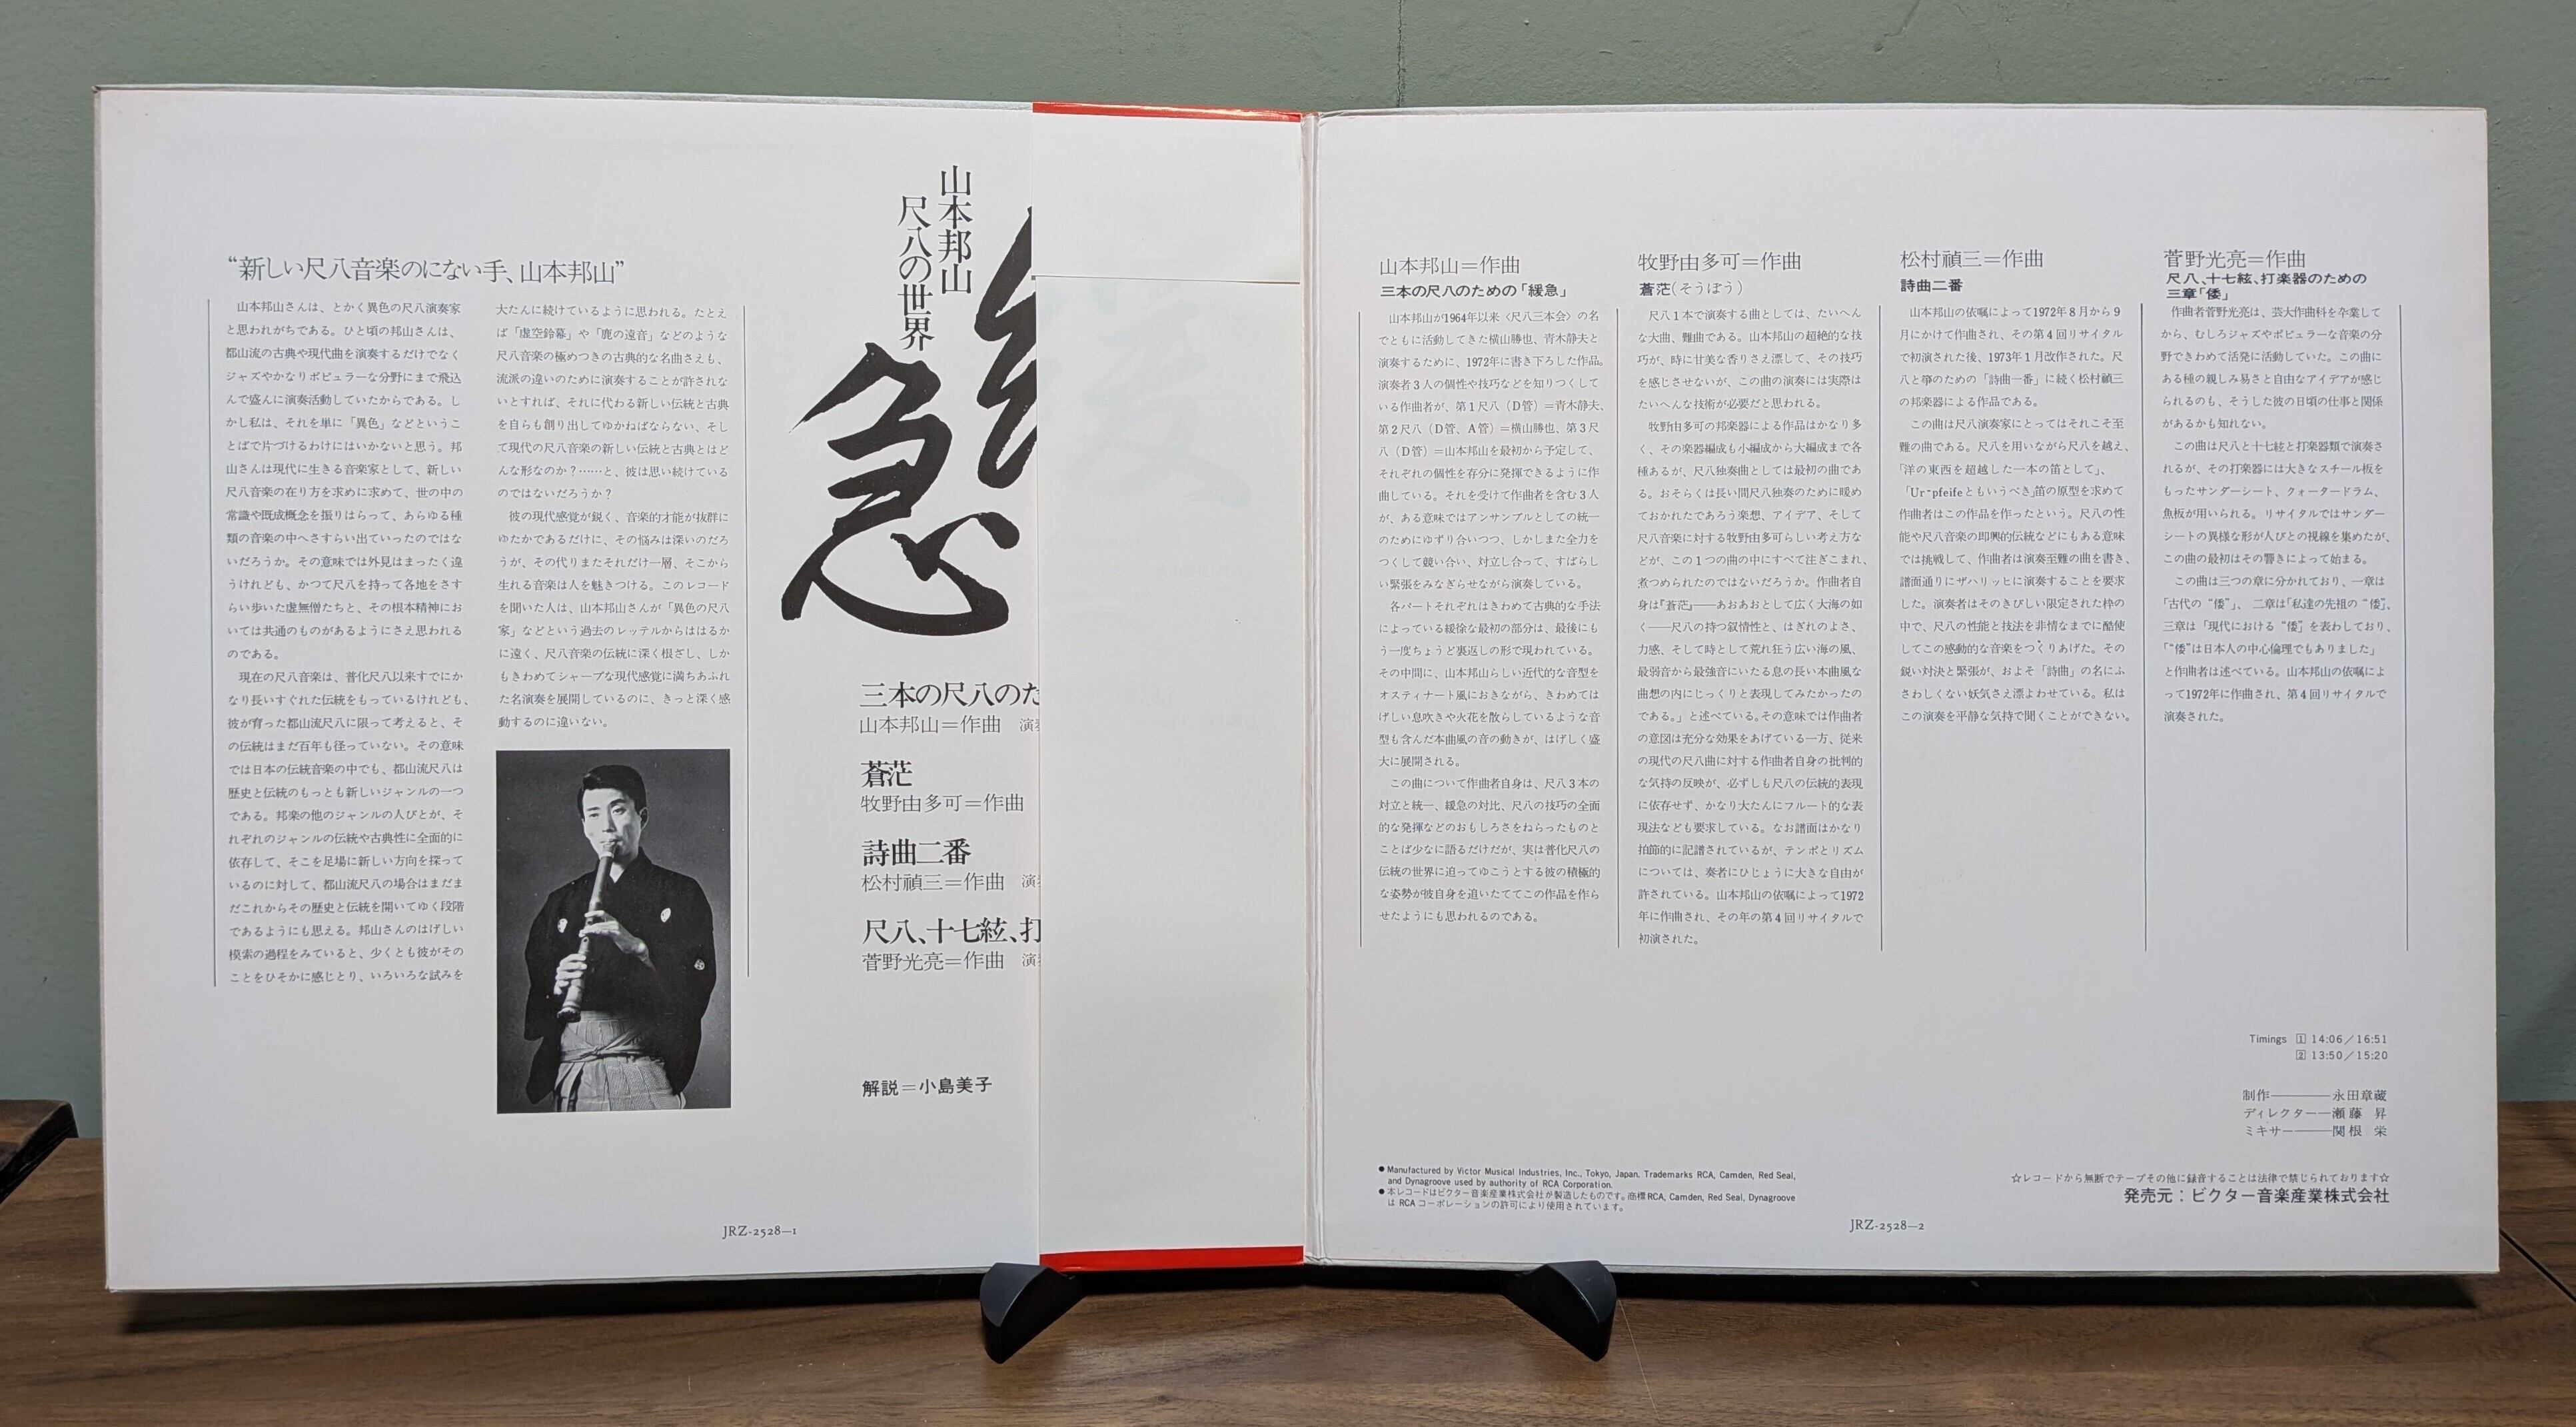 山本邦山
尺八の世界
急
“新しい尺八音楽のにない手、山本邦山”
山本邦山さんは、とかく異色の尺八演奏家
と思われがちである。ひと頃の邦山さんは、
都山流の古典や現代曲を演奏するだけでなく
ジャズやかなりポピュラーな分野にまで飛込
んで盛んに演奏活動していたからである。し
かし私は、それを単に「異色」などというこ
とばで片づけるわけにはいかないと思う。邦
山さんは現代に生きる音楽家として、新しい
尺八音楽の在り方を求めに求めて、世の中の
常識や既成概念を振りはらって、あらゆる種
類の音楽の中へさすらい出ていったのではな
いだろうか。その意味では外見はまったく違
うけれども、かつて尺八を持って各地をさす
らい歩いた虚無僧たちと、その根本精神にお
いては共通のものがあるようにさえ思われる
のである。
現在の尺八音楽は、普化尺八以来すでにか
なり長いすぐれた伝統をもっているけれども、
彼が育った都山流尺八に限って考えると、そ
の伝統はまだ百年も径っていない。その意味
では日本の伝統音楽の中でも、都山流尺八は
歴史と伝統のもっとも新しいジャンルの一つ
である。邦楽の他のジャンルの人びとが、そ
れぞれのジャンルの伝統や古典性に全面的に
依存して、そこを足場に新しい方向を探って
いるのに対して、都山流尺八の場合はまだま
だこれからその歴史と伝統を開いてゆく段階
であるようにも思える。邦山さんのはげしい
模索の過程をみていると、少くとも彼がその
ことをひそかに感じとり、いろいろな試みを
大たんに続けているように思われる。たとえ
ば「虚空鈴幕」や「鹿の遠音」などのような
尺八音楽の極めつきの古典的な名曲さえも、
流派の違いのために演奏することが許されな
いとすれば、それに代わる新しい伝統と古典
を自らも創り出してゆかねばならない、そし
て現代の尺八音楽の新しい伝統と古典とはど
んな形なのか?……と、彼は思い続けている
のではないだろうか?
彼の現代感覚が鋭く、音楽的才能が抜群に
ゆたかであるだけに、その悩みは深いのだろ
うが、その代りまたそれだけ一層、そこから
生れる音楽は人を魅きつける。このレコード
を聞いた人は、山本邦山さんが「異色の尺八
家」などという過去のレッテルからははるか
に遠く、尺八音楽の伝統に深く根ざし、しか
もきわめてシャープな現代感覚に満ちあふれ
た名演奏を展開しているのに、きっと深く感
動するのに違いない。
三本の尺八のた
山本邦山=作曲 演
蒼茫
牧野由多可=作曲
詩曲二番
松村禎三=作曲 演
尺八、十七絃、打
菅野光亮=作曲 演
解説=小島美子
JRZ-2528—1
山本邦山=作曲
三本の尺八のための「緩急」
山本邦山が1964年以来〈尺八三本会〉の名
でともに活動してきた横山勝也、青木静夫と
演奏するために、1972年に書き下ろした作品。
演奏者3人の個性や技巧などを知りつくして
いる作曲者が、第1尺八(D管)=青木静夫、
第2尺八(D管、A管)=横山勝也、第3尺
八(D管)=山本邦山を最初から予定して、
それぞれの個性を存分に発揮できるように作
曲している。それを受けて作曲者を含む3人
が、ある意味ではアンサンブルとしての統一
のためにゆずり合いつつ、しかしまた全力を
つくして競い合い、対立し合って、すばらし
い緊張をみなぎらせながら演奏している。
各パートそれぞれはきわめて古典的な手法
によっている緩徐な最初の部分は、最後にも
う一度ちょうど裏返しの形で現われている。
その中間に、山本邦山らしい近代的な音型を
オスティナート風におきながら、きわめては
げしい息吹きや火花を散らしているような音
型も含んだ本曲風の音の動きが、はげしく盛
大に展開される。
この曲について作曲者自身は、尺八3本の
対立と統一、緩急の対比、尺八の技巧の全面
的な発揮などのおもしろさをねらったものと
ことば少なに語るだけだが、実は普化尺八の
伝統の世界に迫ってゆこうとする彼の積極的
な姿勢が彼自身を追いたててこの作品を作ら
せたようにも思われるのである。
牧野由多可=作曲
蒼茫(そうぼう)
尺八1本で演奏する曲としては、たいへん
な大曲、難曲である。山本邦山の超絶的な技
巧が、時に甘美な香りさえ漂して、その技巧
を感じさせないが、この曲の演奏には実際は
たいへんな技術が必要だと思われる。
牧野由多可の邦楽器による作品はかなり多
く、その楽器編成も小編成から大編成まで各
種あるが、尺八独奏曲としては最初の曲であ
る。おそらくは長い間尺八独奏のために暖め
ておかれたであろう楽想、アイデア、そして
尺八音楽に対する牧野由多可らしい考え方な
どが、この1つの曲の中にすべて注ぎこまれ、
煮つめられたのではないだろうか。作曲者自
身は『蒼茫』——あおあおとして広く大海の如
く——尺八の持つ叙情性と、はぎれのよさ、
力感、そして時として荒れ狂う広い海の風、
最弱音から最強音にいたる息の長い本曲風な
曲想の内にじっくりと表現してみたかったの
である。」と述べている。その意味では作曲者
の意図は充分な効果をあげている一方、従来
の現代の尺八曲に対する作曲者自身の批判的
な気持の反映が、必ずしも尺八の伝統的表現
に依存せず、かなり大たんにフルート的な表
現法なども要求している。なお譜面はかなり
拍節的に記譜されているが、テンポとリズム
については、奏者にひじょうに大きな自由が
許されている。山本邦山の依嘱によって1972
年に作曲され、その年の第4回リサイタルで
初演された。
松村禎三=作曲
詩曲二番
山本邦山の依嘱によって1972年8月から9
月にかけて作曲され、その第4回リサイタル
で初演された後、1973年1月改作された。尺
八と箏のための「詩曲一番」に続く松村禎三
の邦楽器による作品である。
この曲は尺八演奏家にとってはそれこそ至
難の曲である。尺八を用いながら尺八を越え、
「洋の東西を超越した一本の笛として」、
「Ur-pfeifeともいうべき」笛の原型を求めて
作曲者はこの作品を作ったという。尺八の性
能や尺八音楽の即興的伝統などにもある意味
では挑戦して、作曲者は演奏至難の曲を書き、
譜面通りにザハリッヒに演奏することを要求
した。演奏者はそのきびしい限定された枠の
中で、尺八の性能と技法を非情なまでに酷使
してこの感動的な音楽をつくりあげた。その
鋭い対決と緊張が、およそ「詩曲」の名にふ
さわしくない妖気さえ漂よわせている。私は
この演奏を平静な気持で聞くことができない。
菅野光亮=作曲
尺八、十七絃、打楽器のための
三章「倭」
作曲者菅野光亮は、芸大作曲科を卒業して
から、むしろジャズやポピュラーな音楽の分
野できわめて活発に活動していた。この曲に
ある種の親しみ易さと自由なアイデアが感じ
られるのも、そうした彼の日頃の仕事と関係
があるかも知れない。
この曲は尺八と十七絃と打楽器類で演奏さ
れるが、その打楽器には大きなスチール板を
もったサンダーシート、クォータードラム、
魚板が用いられる。リサイタルではサンダー
シートの異様な形が人びとの視線を集めたが、
この曲の最初はその響きによって始まる。
この曲は三つの章に分かれており、一章は
「古代の“倭”」、二章は「私達の先祖の“倭”」、
三章は「現代における“倭”」を表わしており、
「“倭”は日本人の中心倫理でもありました」
と作曲者は述べている。山本邦山の依嘱によ
って1972年に作曲され、第4回リサイタルで
演奏された。
Timings 1 14:06/16:51
2 13:50/15:20
制作———永田章蔵
ディレクター—瀬藤 昇
ミキサー——関根 栄
● Manufactured by Victor Musical Industries, Inc., Tokyo, Japan. Trademarks RCA, Camden, Red Seal,
and Dynagroove used by authority of RCA Corporation.
● 本レコードはビクター音楽産業株式会社が製造したものです。商標RCA, Camden, Red Seal, Dynagroove
は RCA コーポレーションの許可により使用されています。
☆レコードから無断でテープその他に録音することは法律で禁じられております☆
発売元:ビクター音楽産業株式会社
JRZ-2528—2